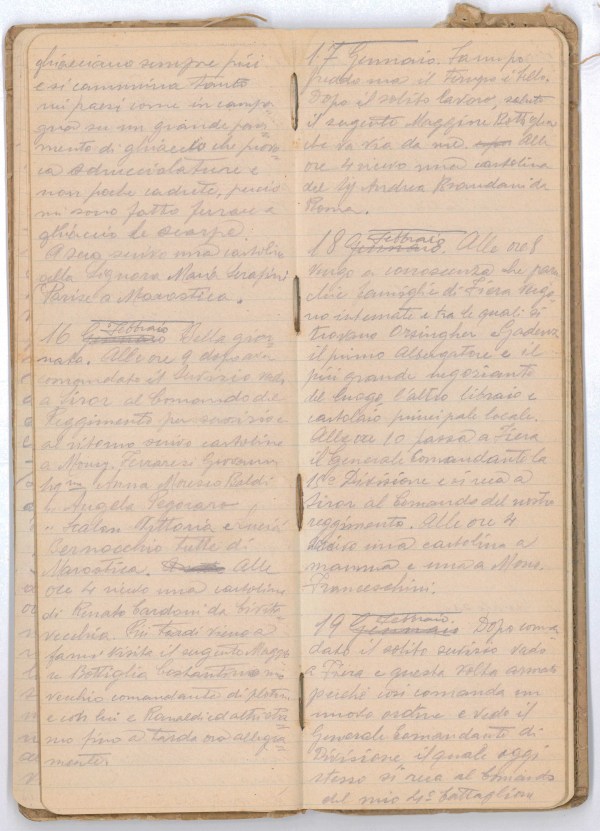 ghiacciano sempre più
e si cammina tanto
nei paesi come in campa-
gna su un grande pavi-
mento di ghiaccio che provo-
ca sdrucciolature e
non poche cadute, perciò
mi sono fatto ferrare a
ghiaccio le scarpe.
A sera scrivo una cartolina
alla Signora Maria Serafini
Parise a Marostica.
16 Gennaio Febbraio Bella gior-
nata. Alle ore 9 dopo aver
comandato il servizio vado
a Siror al Comando del
Reggimento per servizio e
al ritorno scrivo cartoline
a Mons. Ferraresi Giovanni
Anna Moresco Baldi
Angela Pegoraro,
" Scalon Vittoria e
Cernocchio tutte di
Marostica. Alle
ore 4 ricevo una cartolina
di Renato Cardoni da Civita-
vecchia. Più tardi viene a
farmi visita il sergente Maggio-
re Bottiglia Costantino mio
vecchio comandante di plotone
e con lui e Ranaldi ed altri stia-
mo fino a tarda ora allegra-
mente.
17 Gennaio. Fa un po'
freddo ma il tempo è bello.
Dopo il solito lavoro, saluto
il sergente Maggiore Bottiglia
che va via da me. Alle
ore 4 ricevo una cartolina
del Sg Andrea Brandani da
Roma.
18 Gennaio Febbraio. Alle ore 8
vengo a conoscenza che parec-
chie famiglie di Fiera vengo-
no internate e tra le quali si
trovano Orsingher
il primo Albergatore e il
più grande negoziante
del luogo, l'altro libraio e
cartolaio principale locale.
Alle ore 10 passa a Fiera
il Generale Comandante la
15a Divisione e si reca a
Siror al Comando del nostro
reggimento. Alle ore 4
scrivo una cartolina a
mamma e una a Mons.
Franceschini.
19 Gennaio Febbraio. Dopo coman-
dato il solito servizio vado
a Fiera e questa volta armato
perchè così comanda un
nuovo ordine e vedo il
Generale Comandante di
Divisione, il quale oggi
stesso si reca al Comando
del mio 4° battaglione